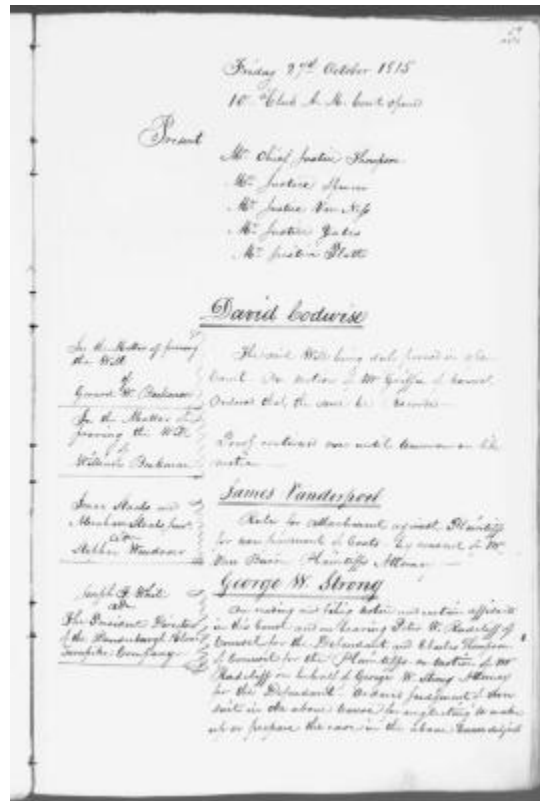 Friday 27th October 1815
10 Clock A. M. Court opened
Present
Mr Chief Justice Thompson
Mr Justice Spencer
Mr Justice Van Ness
Mr Justice Yates
Mr Justice Platt
David Codwise
In the Matter of proving
the Will
of
Gerard W. Beekman
The said Will being duly proved in open
Court On motion of Mr Griffin of Counsel
Ordered that the same be
In the Matter of
proving the Will
of
Beekman
Proof continued over until tomorrow on like
motion
James Vanderpoel
Isaac Staats and
Abraham Staats Junr
adm
Rule for attachment against Plaintiffs
for non payment of Costs - by consent of Mr
Van Buren Plaintiffs Attorney
George W. Strong
Joseph G.
adm
The President Directors
of the
Turnpike Company
On reading and filing notice and certain affidavits
in this Court and on hearing Peter W. Radcliff of
Counsel for the Defendant and Charles Thompson
of Counsel for the Plaintiffs on motion of Mr
Radcliff on behalf of George W. Strong Attorney
for the Defendant Ordered judgment of Non
suit in the above Cause for neglecting to make
up or prepare the case in the above Cause